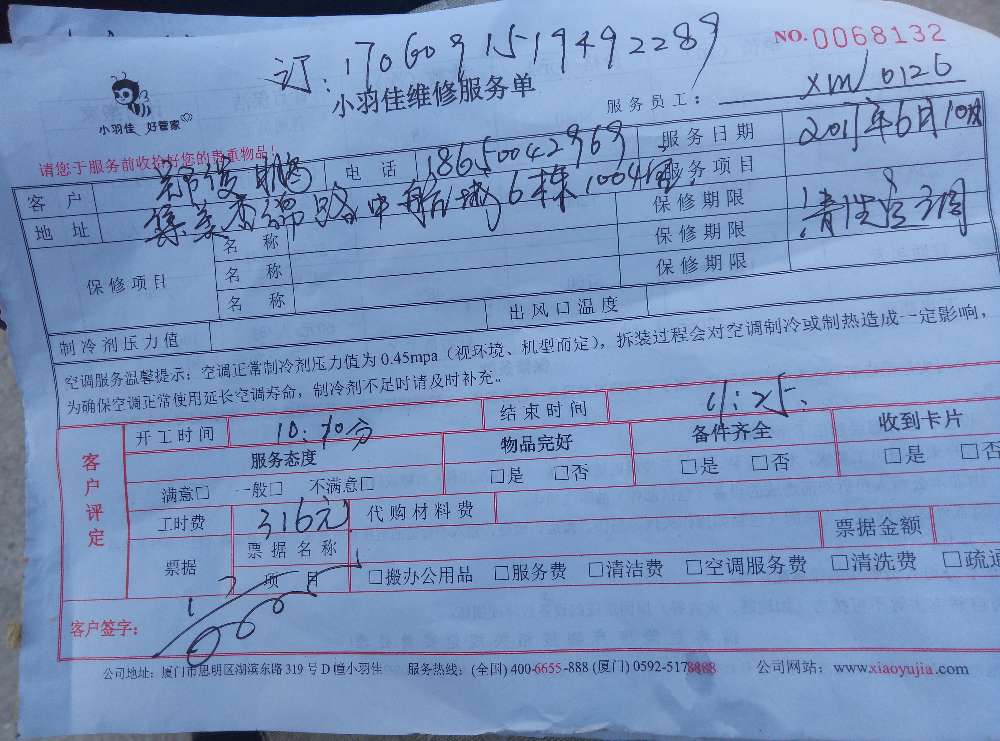 NO.0068132
订:1706091519492289
小羽佳 好管家
小羽佳维修服务单
服务员工: XM/0126
请您于服务前收拾好您的贵重物品!
客户 电话 18650042969 服务日期 2017年6月10日
地址 集美杏锦路中航城6栋1004 服务项目 清洗空调
保修项目 名称 保修期限
名称 保修期限
名称 保修期限
制冷剂压力值 出风口温度
空调服务温馨提示:空调正常制冷剂压力值为0.45mpa(视环境、机型而定),拆装过程会对空调制冷或制热造成一定影响,
为确保空调正常使用延长空调寿命,制冷剂不足时请及时补充。
客户评定
开工时间 结束时间 11:25
服务态度 物品完好 备件齐全 收到卡片
满意□ 一般□ 不满意□ □是 □否 □是 □否 □是 □否
工时费 316元 代购材料费
票据 票据名称 票据金额
项目 □搬办公用品 □服务费 □清洁费 □空调服务费 □清洗费 □疏通
客户签字:
公司地址:厦门市思明区湖滨东路319号D幢小羽佳 服务热线:(全国)400-6655-888 (厦门)0592-5178888 公司网站:www.xiaoyujia.com